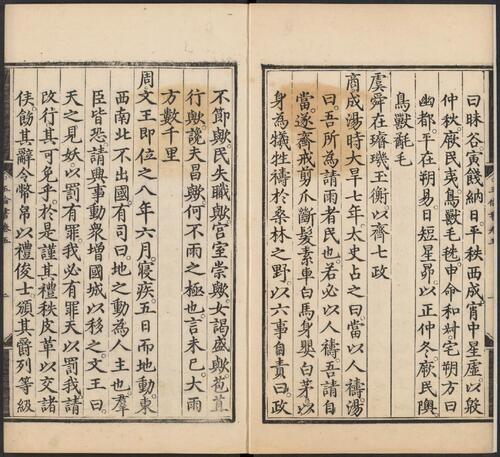 曰昧谷寅餞納日平秩西成宵中星虛以殷
仲秋厥民夷鳥獸毛毨申命和叔宅朔方曰
幽都平在朔易日短星昴以正仲冬厥民隩
鳥獸氄毛
虞舜在璿璣玉衡以齊七政
商成湯時大旱七年太史占之曰當以人禱湯
曰吾所為請雨者民也若必以人禱吾請自
當遂齋戒剪爪斷髮素車白馬身嬰白茅以
身為犧牲禱於桑林之野以六事自責曰政
不節歟民失職歟宮室崇歟女謁盛歟苞苴
行歟讒夫昌歟何不雨之極也言未已大雨
方數千里
周文王即位之八年六月寢疾五日而地動東
西南北不出國有司曰地之動為人主也羣
臣皆恐請興事動衆增國城以移之文王曰
天之見妖以罰有罪我必有罪天以罰我請
改行其可免乎於是謹其禮秩皮革以交諸
侯飭其辭令幣帛以禮俊士頒其爵列等級